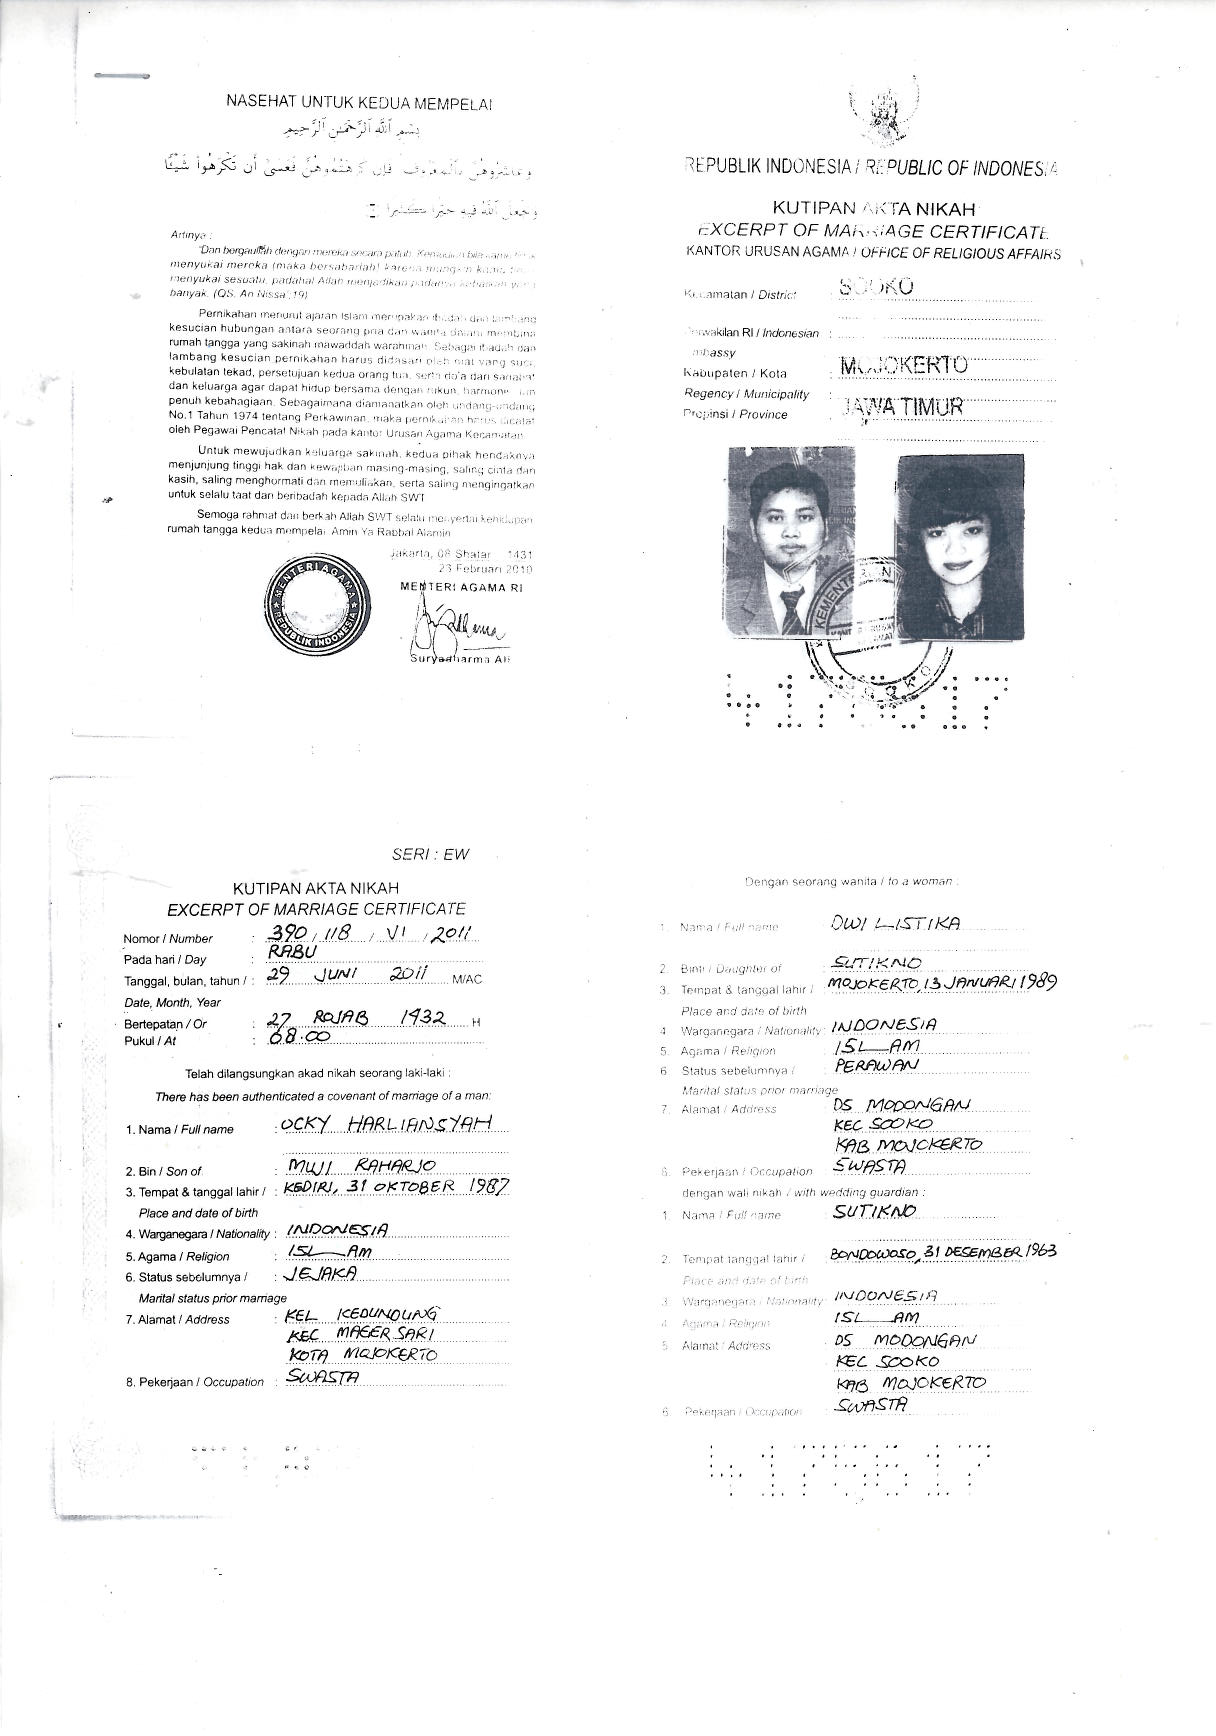 NASEHAT UNTUK KEDUA MEMPELAI
بِسْمِ اللَّهِ الرَّحْمَنِ الرَّحِيمِ
Artinya :
"Dan bergaullah dengan mereka secara patut.
menyukai mereka (maka bersabarlah) karena
menyukai sesuatu, padahal Allah menjadikan padanya kebaikan
banyak. (QS. An Nissa : 19)
Pernikahan menurut ajaran Islam merupakan ibadah dan lambang
kesucian hubungan antara seorang pria dan wanita dalam membina
rumah tangga yang sakinah mawaddah warahmah. Sebagai ibadah dan
lambang kesucian pernikahan harus didasari oleh niat yang suci,
kebulatan tekad, persetujuan kedua orang tua, serta do'a dari
dan keluarga agar dapat hidup bersama dengan rukun, harmonis dan
penuh kebahagiaan. Sebagaimana diamanatkan oleh undang-undang
No.1 Tahun 1974 tentang Perkawinan, maka pernikahan harus dicatat
oleh Pegawai Pencatat Nikah pada kantor Urusan Agama Kecamatan.
Untuk mewujudkan keluarga sakinah, kedua pihak hendaknya
menjunjung tinggi hak dan kewajiban masing-masing, saling cinta dan
kasih, saling menghormati dan memuliakan, serta saling mengingatkan
untuk selalu taat dan beribadah kepada Allah SWT
Semoga rahmat dan berkah Allah SWT selalu menyertai kehidupan
rumah tangga kedua mempelai. Amin Ya Rabbal Alamin
Jakarta, 08 Shafar 1431
23 Februari 2010
MENTERI AGAMA RI
MENTERI AGAMA
REPUBLIK INDONESIA
Suryadharma Ali
REPUBLIK INDONESIA / REPUBLIC OF INDONESIA
KUTIPAN AKTA NIKAH
EXCERPT OF MARRIAGE CERTIFICATE
KANTOR URUSAN AGAMA / OFFICE OF RELIGIOUS AFFAIRS
Kecamatan / District : SOOKO
Perwakilan RI / Indonesian :
Embassy
Kabupaten / Kota : MOJOKERTO
Regency / Municipality :
Propinsi / Province : JAWA TIMUR
SOOKO
SERI : EW
KUTIPAN AKTA NIKAH
EXCERPT OF MARRIAGE CERTIFICATE
Nomor / Number : 390 / 118 / VI / 2011
Pada hari / Day : RABU
Tanggal, bulan, tahun / : 29 JUNI 2011 M/AC
Date, Month, Year
Bertepatan / Or : 27 ROJAB 1432 H
Pukul / At : 08.00
Telah dilangsungkan akad nikah seorang laki-laki :
There has been authenticated a covenant of marriage of a man:
1. Nama / Full name : OCKY HARLIANSYAH
2. Bin / Son of : MUJI RAHARJO
3. Tempat & tanggal lahir / : KEDIRI, 31 OKTOBER 1987
Place and date of birth
4. Warganegara / Nationality : INDONESIA
5. Agama / Religion : ISLAM
6. Status sebelumnya / : JEJAKA
Marital status prior marriage
7. Alamat / Address : KEL KEDUNDUNG
KEC MAGERSARI
KOTA MOJOKERTO
8. Pekerjaan / Occupation : SWASTA
Dengan seorang wanita / to a woman :
1. Nama / Full name DWI LISTIKA
2. Binti / Daughter of : SUTIKNO
3. Tempat & tanggal lahir / : MOJOKERTO, 13 JANUARI 1989
Place and date of birth
4. Warganegara / Nationality : INDONESIA
5. Agama / Religion : ISLAM
6. Status sebelumnya / : PERAWAN
Marital status prior marriage
7. Alamat / Address DS MODONGAN
KEC SOOKO
KAB MOJOKERTO
8. Pekerjaan / Occupation SWASTA
dengan wali nikah / with wedding guardian :
1. Nama / Full name : SUTIKNO
2. Tempat tanggal lahir / : BONDOWOSO, 31 DESEMBER 1963
Place and date of birth
3. Warganegara / Nationality INDONESIA
4. Agama / Religion ISLAM
5. Alamat / Address DS MODONGAN
KEC SOOKO
KAB MOJOKERTO
6. Pekerjaan / Occupation SWASTA
4175517